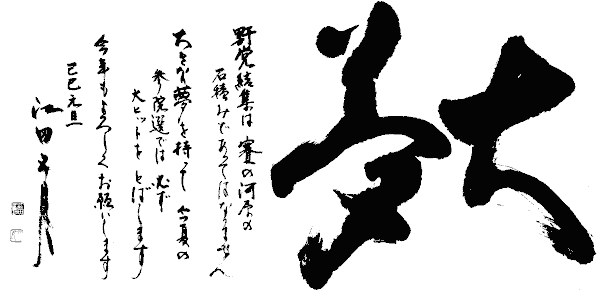 大夢
野党結集は 賽の河原の
石積みであってはなりません
大きな夢を持って 今夏の
参院選では 必ず
大ヒットを とばします
今年もよろしくお願いします
己巳元旦
江田五月